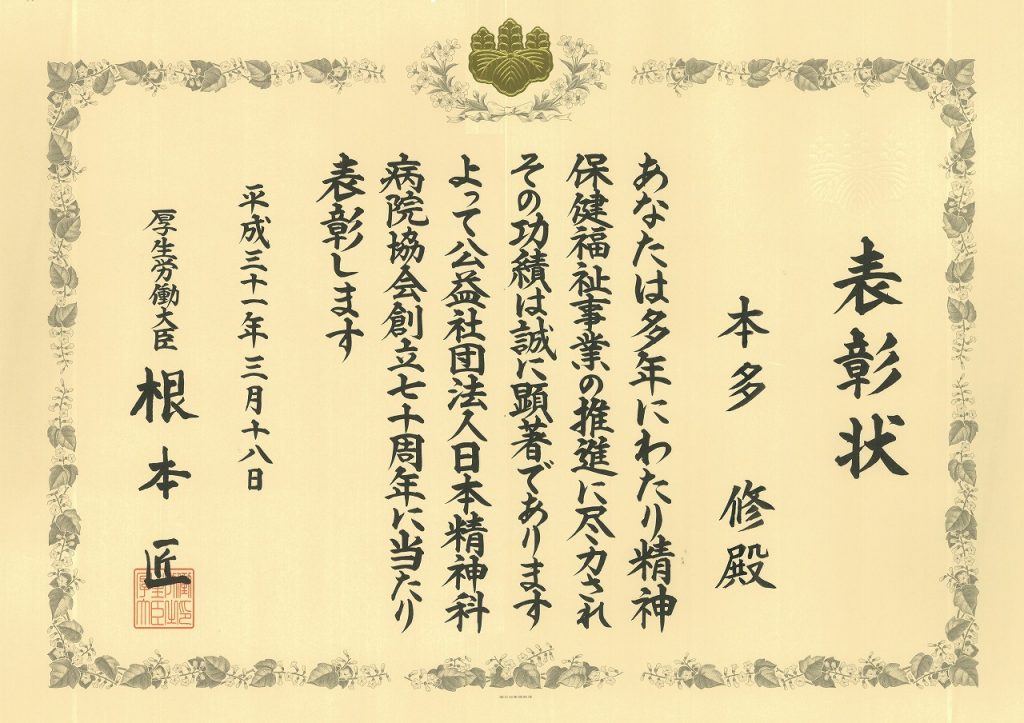 表彰状
本多 修殿
あなたは多年にわたり精神
保健福祉事業の推進に尽力され
その功績は誠に顕著であります
よって公益社団法人日本精神科
病院協会創立七十周年に当たり
表彰します
平成三十一年三月十八日
厚生労働大臣 根本匠